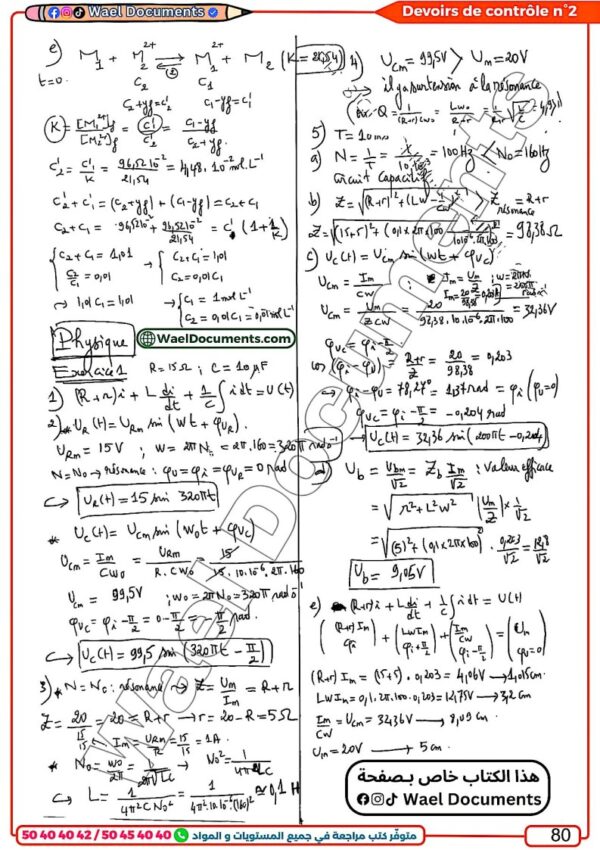 Wael Documents
Devoirs de contrôle n°2
e) M₁ + M₂²⁺ ⇌ M₁²⁺ + M₂ (K = 21,54)
(2)
t=0. C₂ C₁
C₂+yf = C'₂ C₁-yf = C'₁
K = [M₁²⁺]f / [M₂²⁺]f = C'₁/C'₂ = (C₁-yf)/(C₂+yf)
C'₂ = C'₁/K = 96,52.10⁻²/21,54 = 4,48.10⁻² mol.L⁻¹
C'₂ + C'₁ = (C₂+yf) + (C₁-yf) = C₂+C₁
C₂+C₁ = 96,52.10⁻² + 96,52.10⁻²/21,54 = C'₁ (1+1/K)
{ C₂+C₁ = 1,01 → { C₂+C₁ = 1,01
C₂/C₁ = 0,01 C₂ = 0,01C₁
→ 1,01 C₁ = 1,01 → { C₁ = 1 mol L⁻¹
C₂ = 0,01C₁ = 0,01 mol L⁻¹
Physique
WaelDocuments.com
Exercice 1 R = 15 Ω ; C = 10 μF
1) (R+r)i + L di/dt + 1/C ∫ i dt = U(t)
2) * U_R(t) = U_Rm sin(wt + φ_UR).
U_Rm = 15V ; w = 2πN₀ = 2π.160 = 320π rad s⁻¹
N = N₀ → résonance : φu = φi = φ_UR = 0 rad
↪ U_R(t) = 15 sin 320πt
* Uc(t) = Ucm sin(w₀t + φ_Uc)
Ucm = Im/Cw₀ = U_Rm/(R.Cw₀) = 15/(15.10.10⁻⁶.2π.160)
Ucm = 99,5V ; w₀ = 2πN₀ = 320π rad s⁻¹
φ_Uc = φi - π/2 = 0 - π/2 = -π/2 rad
↪ Uc(t) = 99,5 sin(320πt - π/2)
3) * N = N₀ : résonance → Z = Um/Im = R + r
Z = 20/(15/15) = 20 = R+r → r = 20-R = 5Ω
Im = U_Rm/R = 15/15 = 1A.
* N₀ = w₀/2π = 1/(2π√LC) → N₀² = 1/(4π²LC)
↪ L = 1/(4π²CN₀²) = 1/(4π².10.10⁻⁶.(160)²) ≃ 0,1 H
4) Ucm = 99,5V > Um = 20V
→ il y a surtension à la résonance
Q = 1/((R+r)Cw₀) = Lw₀/(R+r) = 1/(R+r) √(L/C) = 4,97
5) T = 10 ms
a) N = 1/T = 1/(10.10⁻³) = 100Hz < N₀ = 160Hz
circuit capacitif
b) Z = √((R+r)² + (Lw - 1/Cw)²) > Z résonance = R+r
Z = √((15+5)² + (0,1×2π×100 - 1/(10.10⁻⁶.2π.100))²) = 98,38 Ω
c) Uc(t) = Ucm sin(wt + φ_Uc)
Ucm = Im/Cw ; Im = Um/Z ; w = 2πN
Im = 20/98,38 = 0,203A = 200π rad s⁻¹
Ucm = Um/(ZCw) = 20/(98,38.10.10⁻⁶.2π.100) = 32,36V
φ_Uc = φi - π/2
cos(φi - φu) = (R+r)/Z = 20/98,38 = 0,203
→ φi - φu = 78,27° = 1,37 rad = φi (φu = 0)
φ_Uc = φi - π/2 = -0,204 rad
↪ Uc(t) = 32,36 sin(200πt - 0,204)
d) U_b = Ubm/√2 = Z_b Im/√2 : valeur efficace
= √(r² + L²w²) (Um/Z) × 1/√2
= √((5)² + (0,1×2π×100)²) . 0,203/√2 = 12,8/√2
U_b = 9,05V
e) (R+r)i + L di/dt + 1/C ∫ i dt = U(t)
((R+r)Im φi) + (LwIm φi + π/2) + (Im/Cw φi - π/2) = (Um φu=0)
(R+r) Im = (15+5) . 0,203 = 4,06V → 1,015cm
LwIm = 0,1.2π.100.0,203 = 12,75V → 3,2 cm
Im/Cw = Ucm = 32,36V → 8,09 cm
Um = 20V → 5 cm
هذا الكتاب خاص بـصفحة
Wael Documents
50 40 40 42 / 50 45 40 40 متوفّر كتب مراجعة في جميع المستويات و المواد
80
Wael Documents